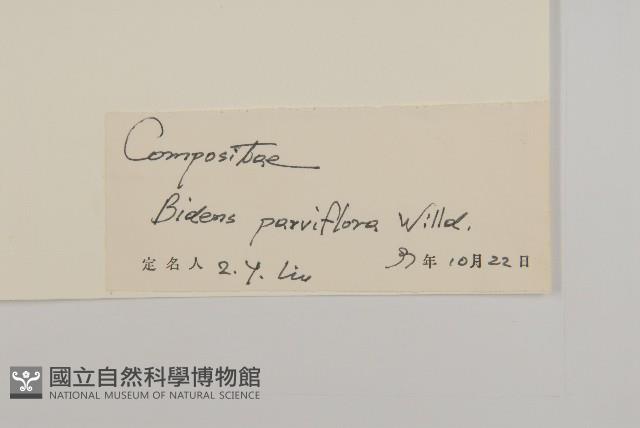 Compositae
Bidens parviflora Willd.
定名人 Z. Y. Liu 年 10月 22日
國立自然科學博物館
NATIONAL MUSEUM OF NATURAL SCIENCE